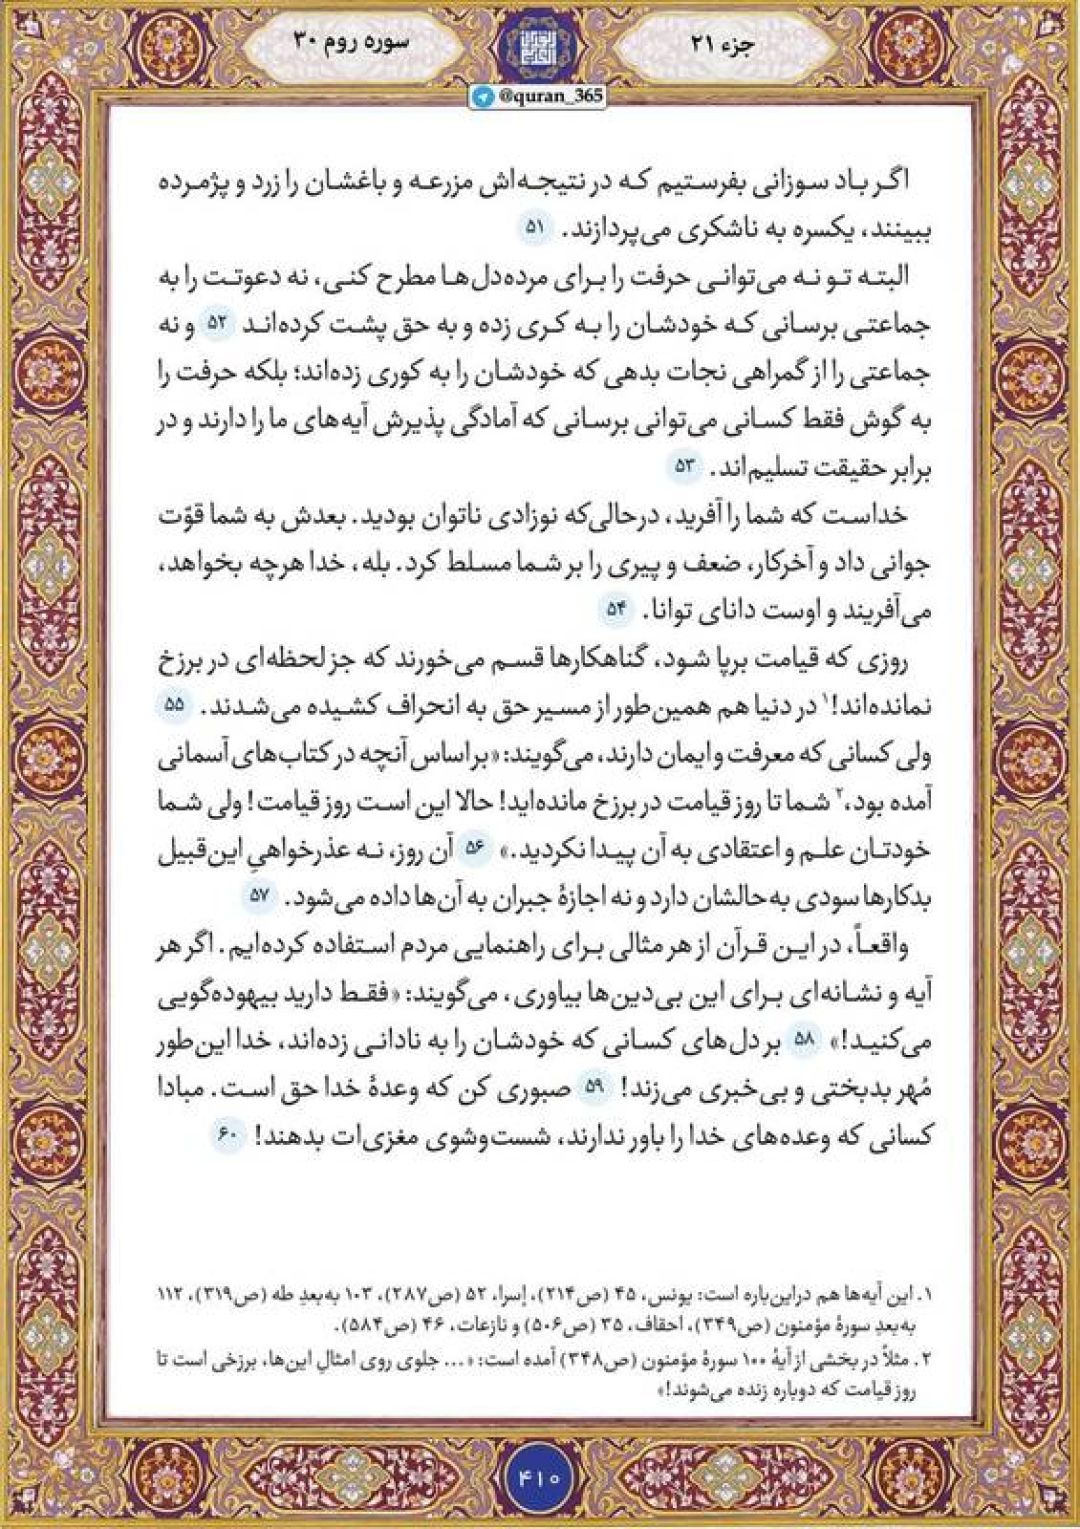 جزء ۲۱
سوره روم ۳۰
@quran_365
اگر باد سوزانی بفرستیم که در نتیجه‌اش مزرعه و باغشان را زرد و پژمرده
ببینند، یکسره به ناشکری می‌پردازند. ۵۱
البته تو نه می‌توانی حرفت را برای مرده‌دل‌ها مطرح کنی، نه دعوتت را به
جماعتی برسانی که خودشان را به کری زده و به حق پشت کرده‌اند ۵۲ و نه
جماعتی را از گمراهی نجات بدهی که خودشان را به کوری زده‌اند؛ بلکه حرفت را
به گوش فقط کسانی می‌توانی برسانی که آمادگی پذیرش آیه‌های ما را دارند و در
برابر حقیقت تسلیم‌اند. ۵۳
خداست که شما را آفرید، درحالی‌که نوزادی ناتوان بودید. بعدش به شما قوّت
جوانی داد و آخرکار، ضعف و پیری را بر شما مسلط کرد. بله، خدا هرچه بخواهد،
می‌آفریند و اوست دانای توانا. ۵۴
روزی که قیامت برپا شود، گناهکارها قسم می‌خورند که جز لحظه‌ای در برزخ
نمانده‌اند!۱ در دنیا هم همین‌طور از مسیر حق به انحراف کشیده می‌شدند. ۵۵
ولی کسانی که معرفت و ایمان دارند، می‌گویند: «براساس آنچه در کتاب‌های آسمانی
آمده بود،۲ شما تا روز قیامت در برزخ مانده‌اید! حالا این است روز قیامت! ولی شما
خودتان علم و اعتقادی به آن پیدا نکردید.» ۵۶ آن روز، نه عذرخواهیِ این‌قبیل
بدکارها سودی به‌حالشان دارد و نه اجازهٔ جبران به آن‌ها داده می‌شود. ۵۷
واقعاً، در این قرآن از هر مثالی برای راهنمایی مردم استفاده کرده‌ایم. اگر هر
آیه و نشانه‌ای برای این بی‌دین‌ها بیاوری، می‌گویند: «فقط دارید بیهوده‌گویی
می‌کنید!» ۵۸ بر دل‌های کسانی که خودشان را به نادانی زده‌اند، خدا این‌طور
مُهر بدبختی و بی‌خبری می‌زند! ۵۹ صبوری کن که وعدهٔ خدا حق است. مبادا
کسانی که وعده‌های خدا را باور ندارند، شست‌وشوی مغزی‌ات بدهند! ۶۰
۱. این آیه‌ها هم دراین‌باره است: یونس، ۴۵ (ص۲۱۴)، اِسرا، ۵۲ (ص۲۸۷)، ۱۰۳ به‌بعدِ طه (ص۳۱۹)، ۱۱۲
به‌بعدِ سورهٔ مؤمنون (ص۳۴۹)، احقاف، ۳۵ (ص۵۰۶) و نازعات، ۴۶ (ص۵۸۴).
۲. مثلاً در بخشی از آیهٔ ۱۰۰ سورهٔ مؤمنون (ص۳۴۸) آمده است: «... جلوی روی امثالِ این‌ها، برزخی است تا
روز قیامت که دوباره زنده می‌شوند!»
۴۱۰